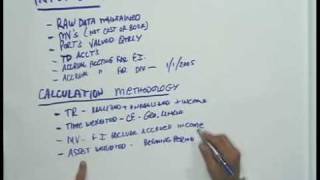 - RAW DATA MAINTAINED
- MV's (NOT COST OR BOOK)
- PORT'S VALUED QTRLY
- TD ACCT'S
- ACCRUAL ACCTING FOR F.I.
- ACCRUAL " FOR DIV — 1/1/2005
CALCULATION METHODOLOGY
- TR - REALIZED + UNREALIZED + INCOME
- TIME WEIGHTED - CF - GEO. LINKED
- MV - F I INCLUDE ACCRUED INCOME
- ASSET WEIGHTED - BEGINNING PERIOD